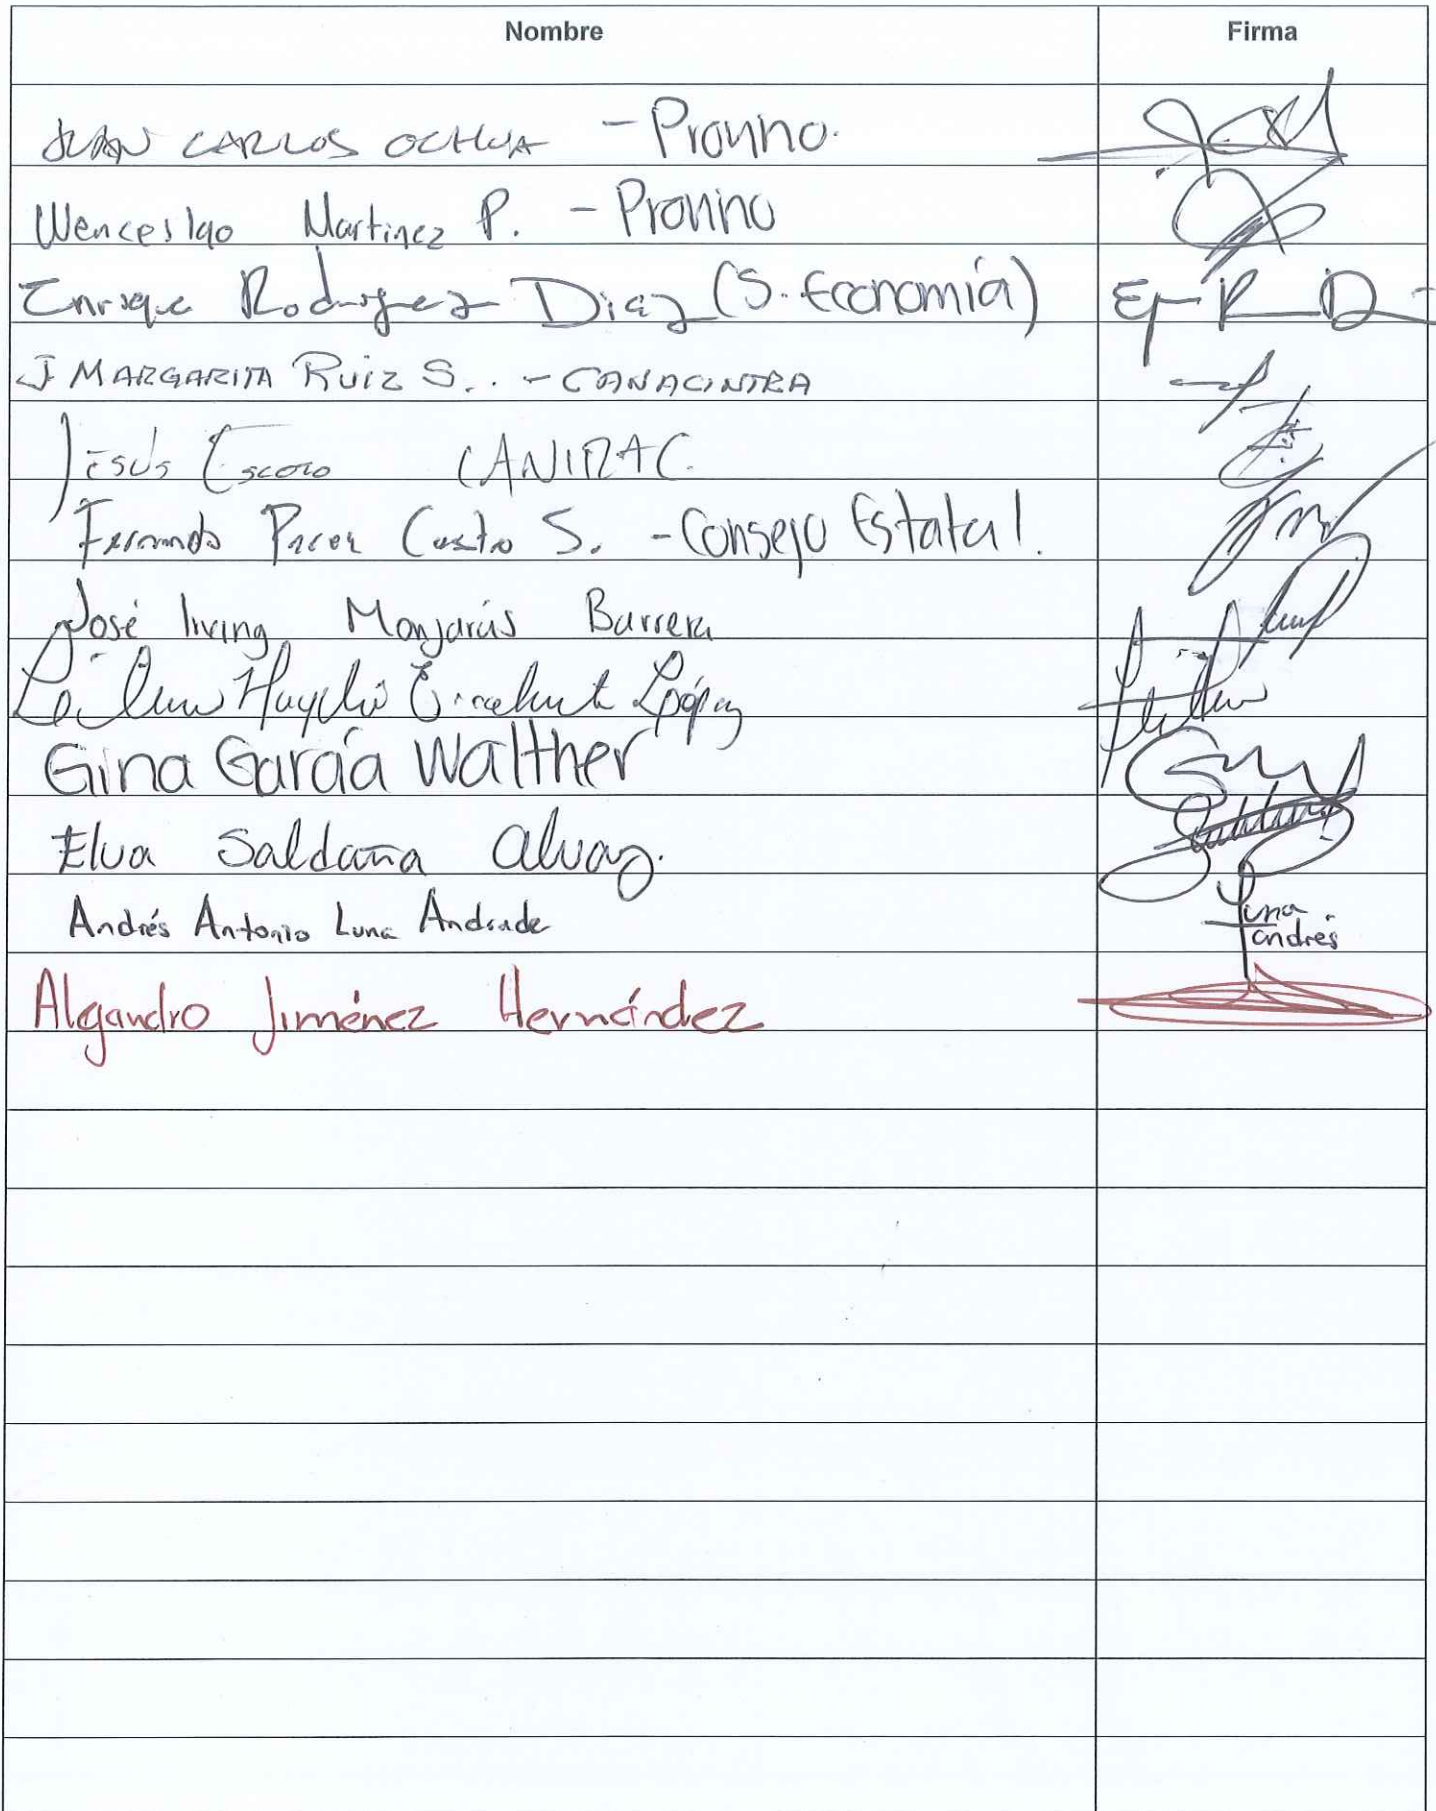 Nombre Firma
JUAN CARLOS OCHOA - Pronino.
Wenceslao Martinez P. - Pronino
Enrique Rodriguez Diaz (S. Economía) E R D
J MARGARITA RUIZ S.. - CANACINTRA
Jesús CANIRAC.
Fernando Castro S. - Consejo Estatal.
José Irving Monjarás Barrera
López
Gina García Walther
Elva Saldaña
Andrés Antonio Luna Andrade Luna andrés
Alejandro Jiménez Hernández